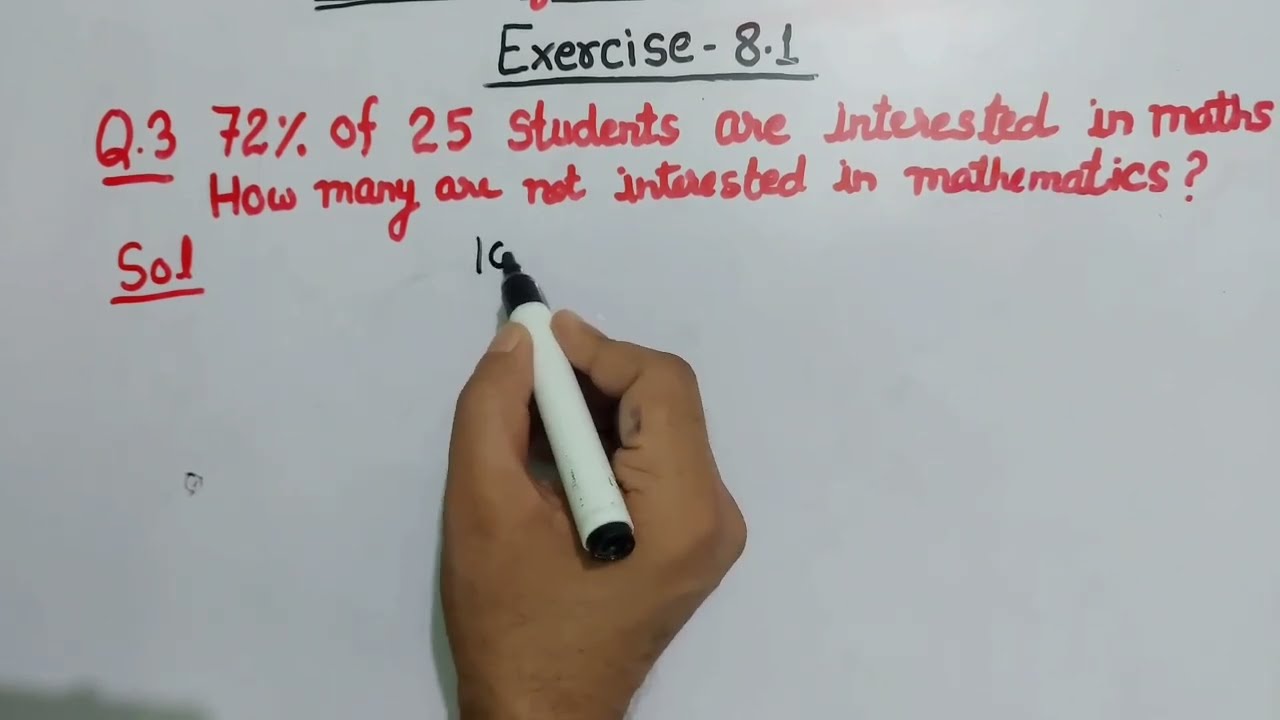 Exercise - 8.1
Q.3 72% of 25 students are interested in maths
How many are not interested in mathematics?
Sol